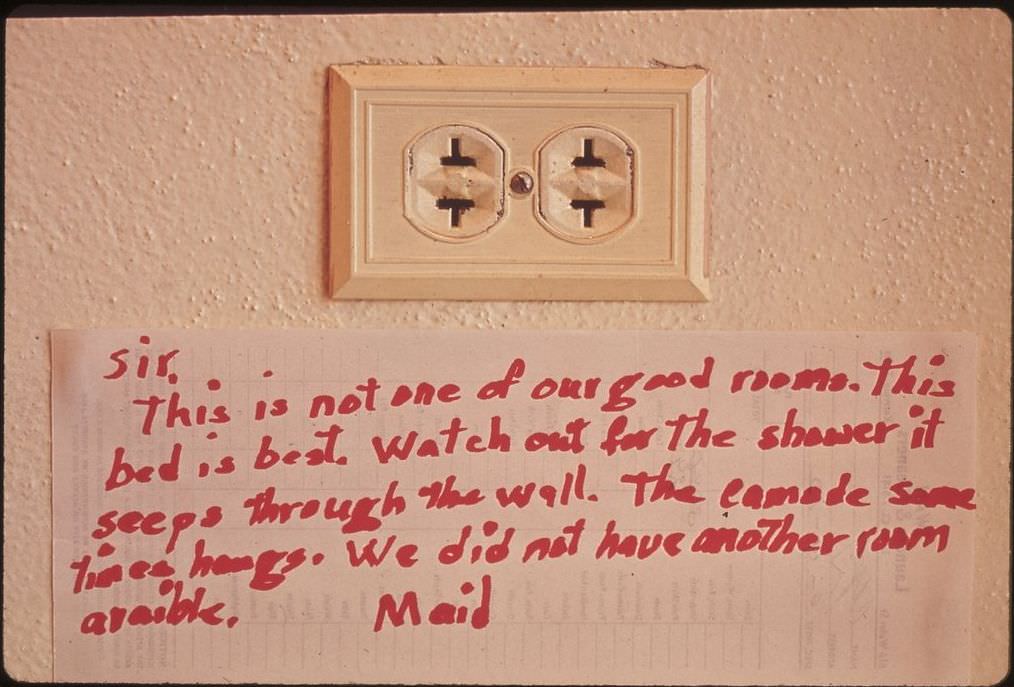 sir,
This is not one of our good rooms. This
bed is best. Watch out for The shower it
seeps through the wall. The camode some
times hangs. We did not have another room
avaible. Maid